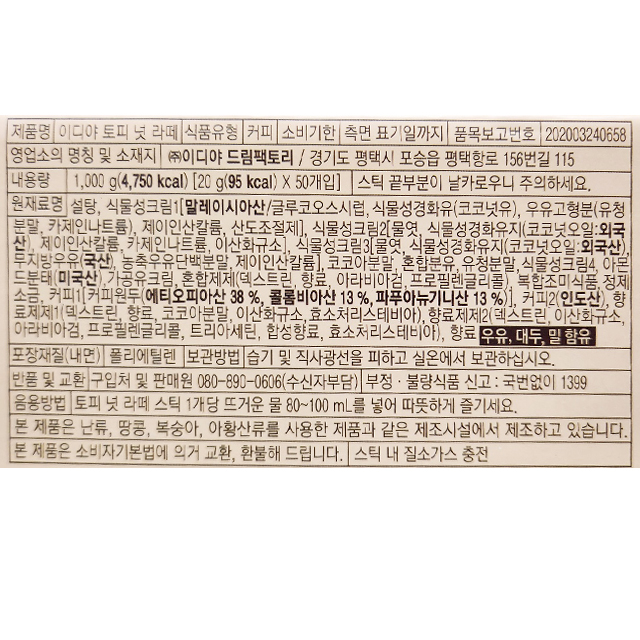 제품명 이디야 토피 넛 라떼 식품유형 커피 소비기한 측면 표기일까지 품목보고번호 202003240658
영업소의 명칭 및 소재지 ㈜이디야 드림팩토리 / 경기도 평택시 포승읍 평택항로 156번길 115
내용량 1,000 g(4,750 kcal) [20 g(95 kcal) X 50개입] 스틱 끝부분이 날카로우니 주의하세요.
원재료명 설탕, 식물성크림1[말레이시아산/글루코오스시럽, 식물성경화유(코코넛유), 우유고형분(유청
분말, 카제인나트륨), 제이인산칼륨, 산도조절제], 식물성크림2[물엿, 식물성경화유지(코코넛오일:외국
산), 제이인산칼륨, 카제인나트륨, 이산화규소], 식물성크림3[물엿, 식물성경화유지(코코넛오일:외국산),
무지방우유(국산), 농축우유단백분말, 제이인산칼륨], 코코아분말, 혼합분유, 유청분말, 식물성크림4, 아몬
드분태(미국산), 가공유크림, 혼합제제(덱스트린, 향료, 아라비아검, 프로필렌글리콜), 복합조미식품, 정제
소금, 커피1[커피원두(에티오피아산 38 %, 콜롬비아산 13 %, 파푸아뉴기니산 13 %)], 커피2(인도산), 향
료제제1(덱스트린, 향료, 코코아분말, 이산화규소, 효소처리스테비아), 향료제제2(덱스트린, 이산화규소,
아라비아검, 프로필렌글리콜, 트리아세틴, 합성향료, 효소처리스테비아), 향료 우유, 대두, 밀 함유
포장재질(내면) 폴리에틸렌 보관방법 습기 및 직사광선을 피하고 실온에서 보관하십시오.
반품 및 교환 구입처 및 판매원 080-890-0606(수신자부담) 부정·불량식품 신고 : 국번없이 1399
음용방법 토피 넛 라떼 스틱 1개당 뜨거운 물 80~100 mL를 넣어 따뜻하게 즐기세요.
본 제품은 난류, 땅콩, 복숭아, 아황산류를 사용한 제품과 같은 제조시설에서 제조하고 있습니다.
본 제품은 소비자기본법에 의거 교환, 환불해 드립니다. 스틱 내 질소가스 충전